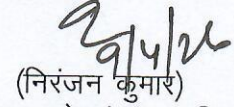 9/4/26
(निरंजन कुमार)